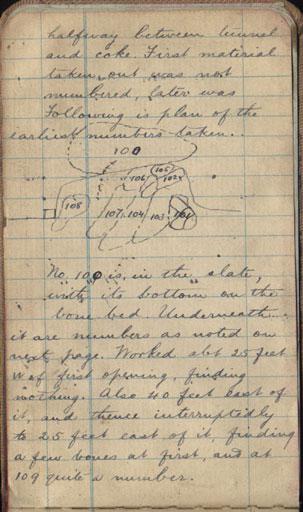 halfway between tunnel
and coke. First material
taken out was not
numbered, later was
Following is plan of the
earliest numbers taken.
100
106 105
102
108
107 104 103 101
No. 100 is in the slate,
with its bottom on the
bone bed. Underneath
it are numbers as noted on
next page. Worked abt 25 feet
W of first opening, finding
nothing. Also 40 feet east of
it, and thence interruptedly
to 25 feet east of it, finding
a few bones at first, and at
109 quite a number.